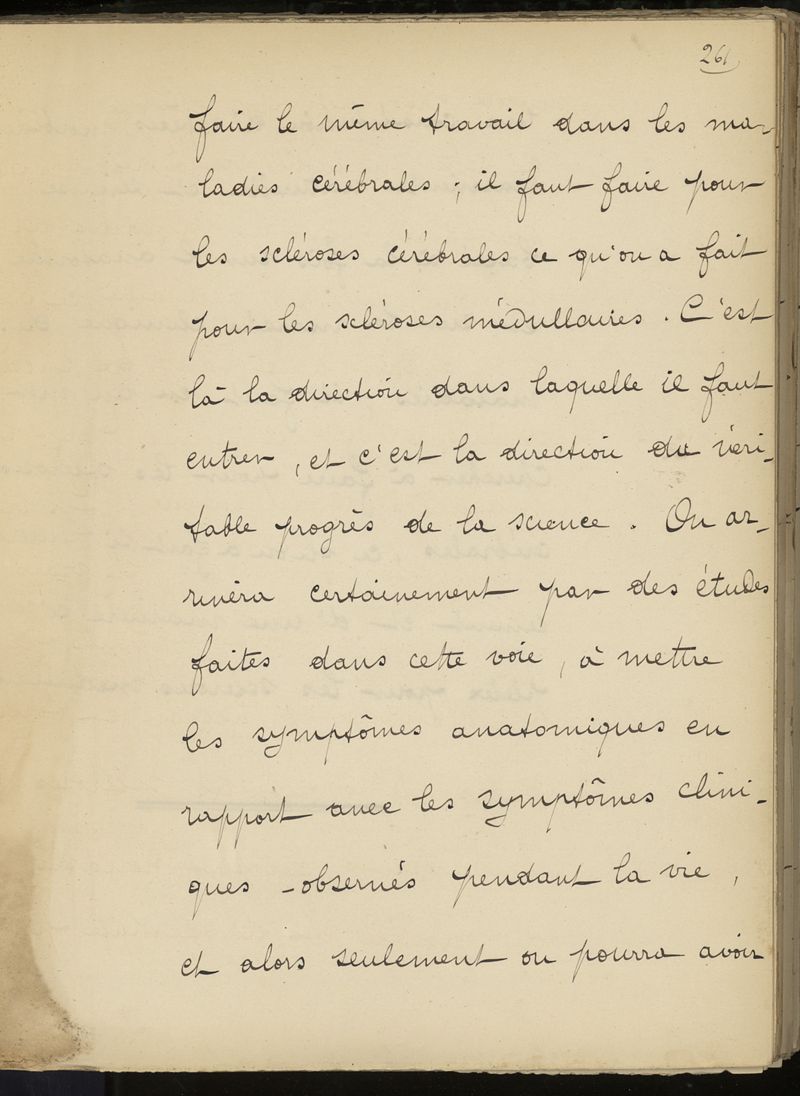 261
faire le même travail dans les ma-
ladies cérébrales ; il faut faire pour
les scléroses cérébrales ce qu'on a fait
pour les scléroses médullaires . C'est
là la direction dans laquelle il faut
entrer , et c'est la direction du véri-
table progrès de la science . On ar-
rivera certainement par des études
faites dans cette voie , à mettre
les symptômes anatomiques en
rapport avec les symptômes clini-
ques observés pendant la vie ,
et alors seulement on pourra avoir